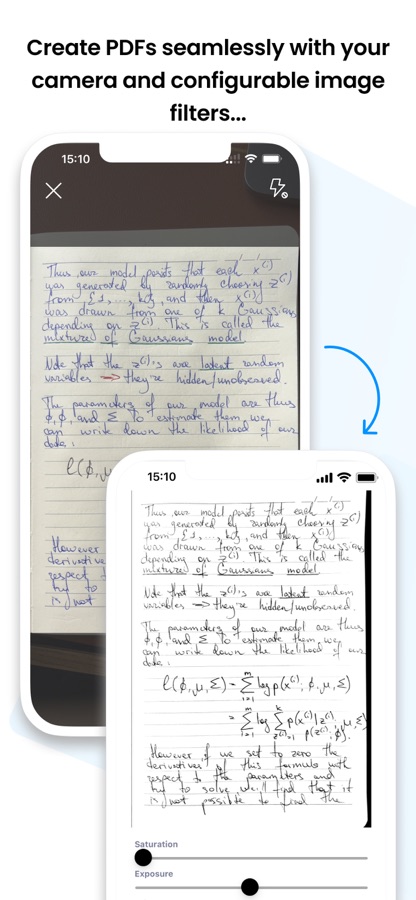 Create PDFs seamlessly with your
camera and configurable image
filters...
15:10
Thus, our model posits that each x(i)
was generated by randomly choosing z(i)
from {1,...,k}, and then x(i)
was drawn from one of k Gaussians
depending on z(i). This is called the
mixture of Gaussians model.
Note that the z(i)'s are latent random
variables → they're hidden/unobserved.
The parameters of our model are thus
ϕ, ϕ, and Σ. To estimate them, we
can write down the likelihood of our
data:
ℓ(ϕ, μ
However
derivatives
respect t
try to
is not
15:10
Thus, our model posits that each x(i)
was generated by randomly choosing z(i)
from {1,...,k}, and then x(i)
was drawn from one of k Gaussians
depending on z(i). This is called the
mixture of Gaussians model.
Note that the z(i)'s are latent random
variables → they're hidden/unobserved.
The parameters of our model are thus
ϕ, ϕ, and Σ. To estimate them, we
can write down the likelihood of our
data:
ℓ(ϕ, μ, Σ) = Σ i=1 m log p(x(i); ϕ, μ, Σ)
= Σ i=1 m log Σ z(i)=1 k p(x(i)|z(i); μ, Σ) p(z(i); ϕ)
However, if we set to zero the
derivatives of this formula with
respect to the parameters and
try to solve, we'll find that it
is not possible to find the
Saturation
Exposure